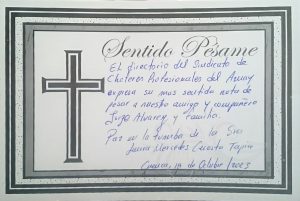 Sentido Pésame
El directorio del Sindicato de
Choferes Profesionales del Azuay
expresa su mas sentida nota de
pesar a nuestro amigo y compañero
Jugo Alvarez y Familia.
Paz en la tumba de la Sra
Mercedes Cuesta
Cuenca, 14 de Octubre/2023